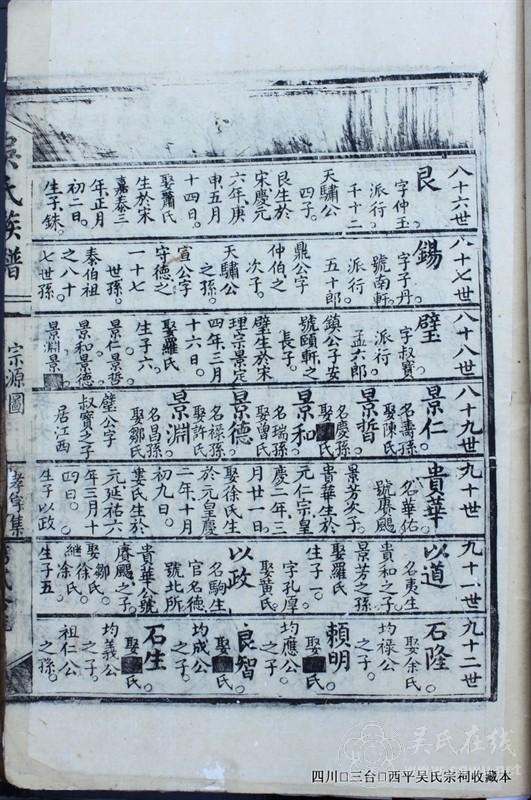 八十六世
艮
字仲玉。
派行。
千十二
天驌公
四子。
艮生於
宋慶元
六年庚
申五月
十四日。
娶蕭氏
生於宋
嘉泰三
年正月
初二日。
生子銖。
八十七世
錫
字子丹。
號南軒。
派行
五十郎
鼎公字
仲伯之
次子。
天驌公
之孫。
宣公字
守德之
十七
世孫。
泰伯祖
之八十
七世孫。
八十八世
璧
字叔寶
派行
孟六郎
鎮公子安
號頤軒之
長子。
璧生於宋
理宗景定
四年三月
十六日。
娶羅氏
生子六。
景仁景哲
景和景德
景淵景
八十九世
景仁。
名壽孫
娶陳氏
景哲。
名慶孫
娶氏
景和。
名瑞孫
娶曾氏
景德。
名禄孫
娶許氏
景淵
名昌孫
娶鄒氏
璧公字
叔寶之子
居江西
九十世
貴華
名華佑
號賡颺
景芳次子。
貴華生於
元仁宗皇
慶二年三
月廿一日
娶徐氏生
於元皇慶
二年十月
初九日。
婁氏生於
元延祐六
年三月十
四日。
生子以政
九十一世
以道
名夷生
貴和之子
景芳之孫
娶羅氏
生子一。
字孔厚
娶黃氏。
以政
名駒生
官名德
號北所
貴華公號
賡颺之子。
娶鄒氏。
繼徐氏。
生子五。
九十二世
石隆
娶余氏
均禄公
之子。
賴明
娶氏
均應公
之子。
良智
娶氏。
均成公
之子。
石生
娶氏
均義公
之子。
祖仁公
之孫。
吳氏族譜
宗源圖
孝字集
吴氏在线
四川□三台□西平吴氏宗祠收藏本